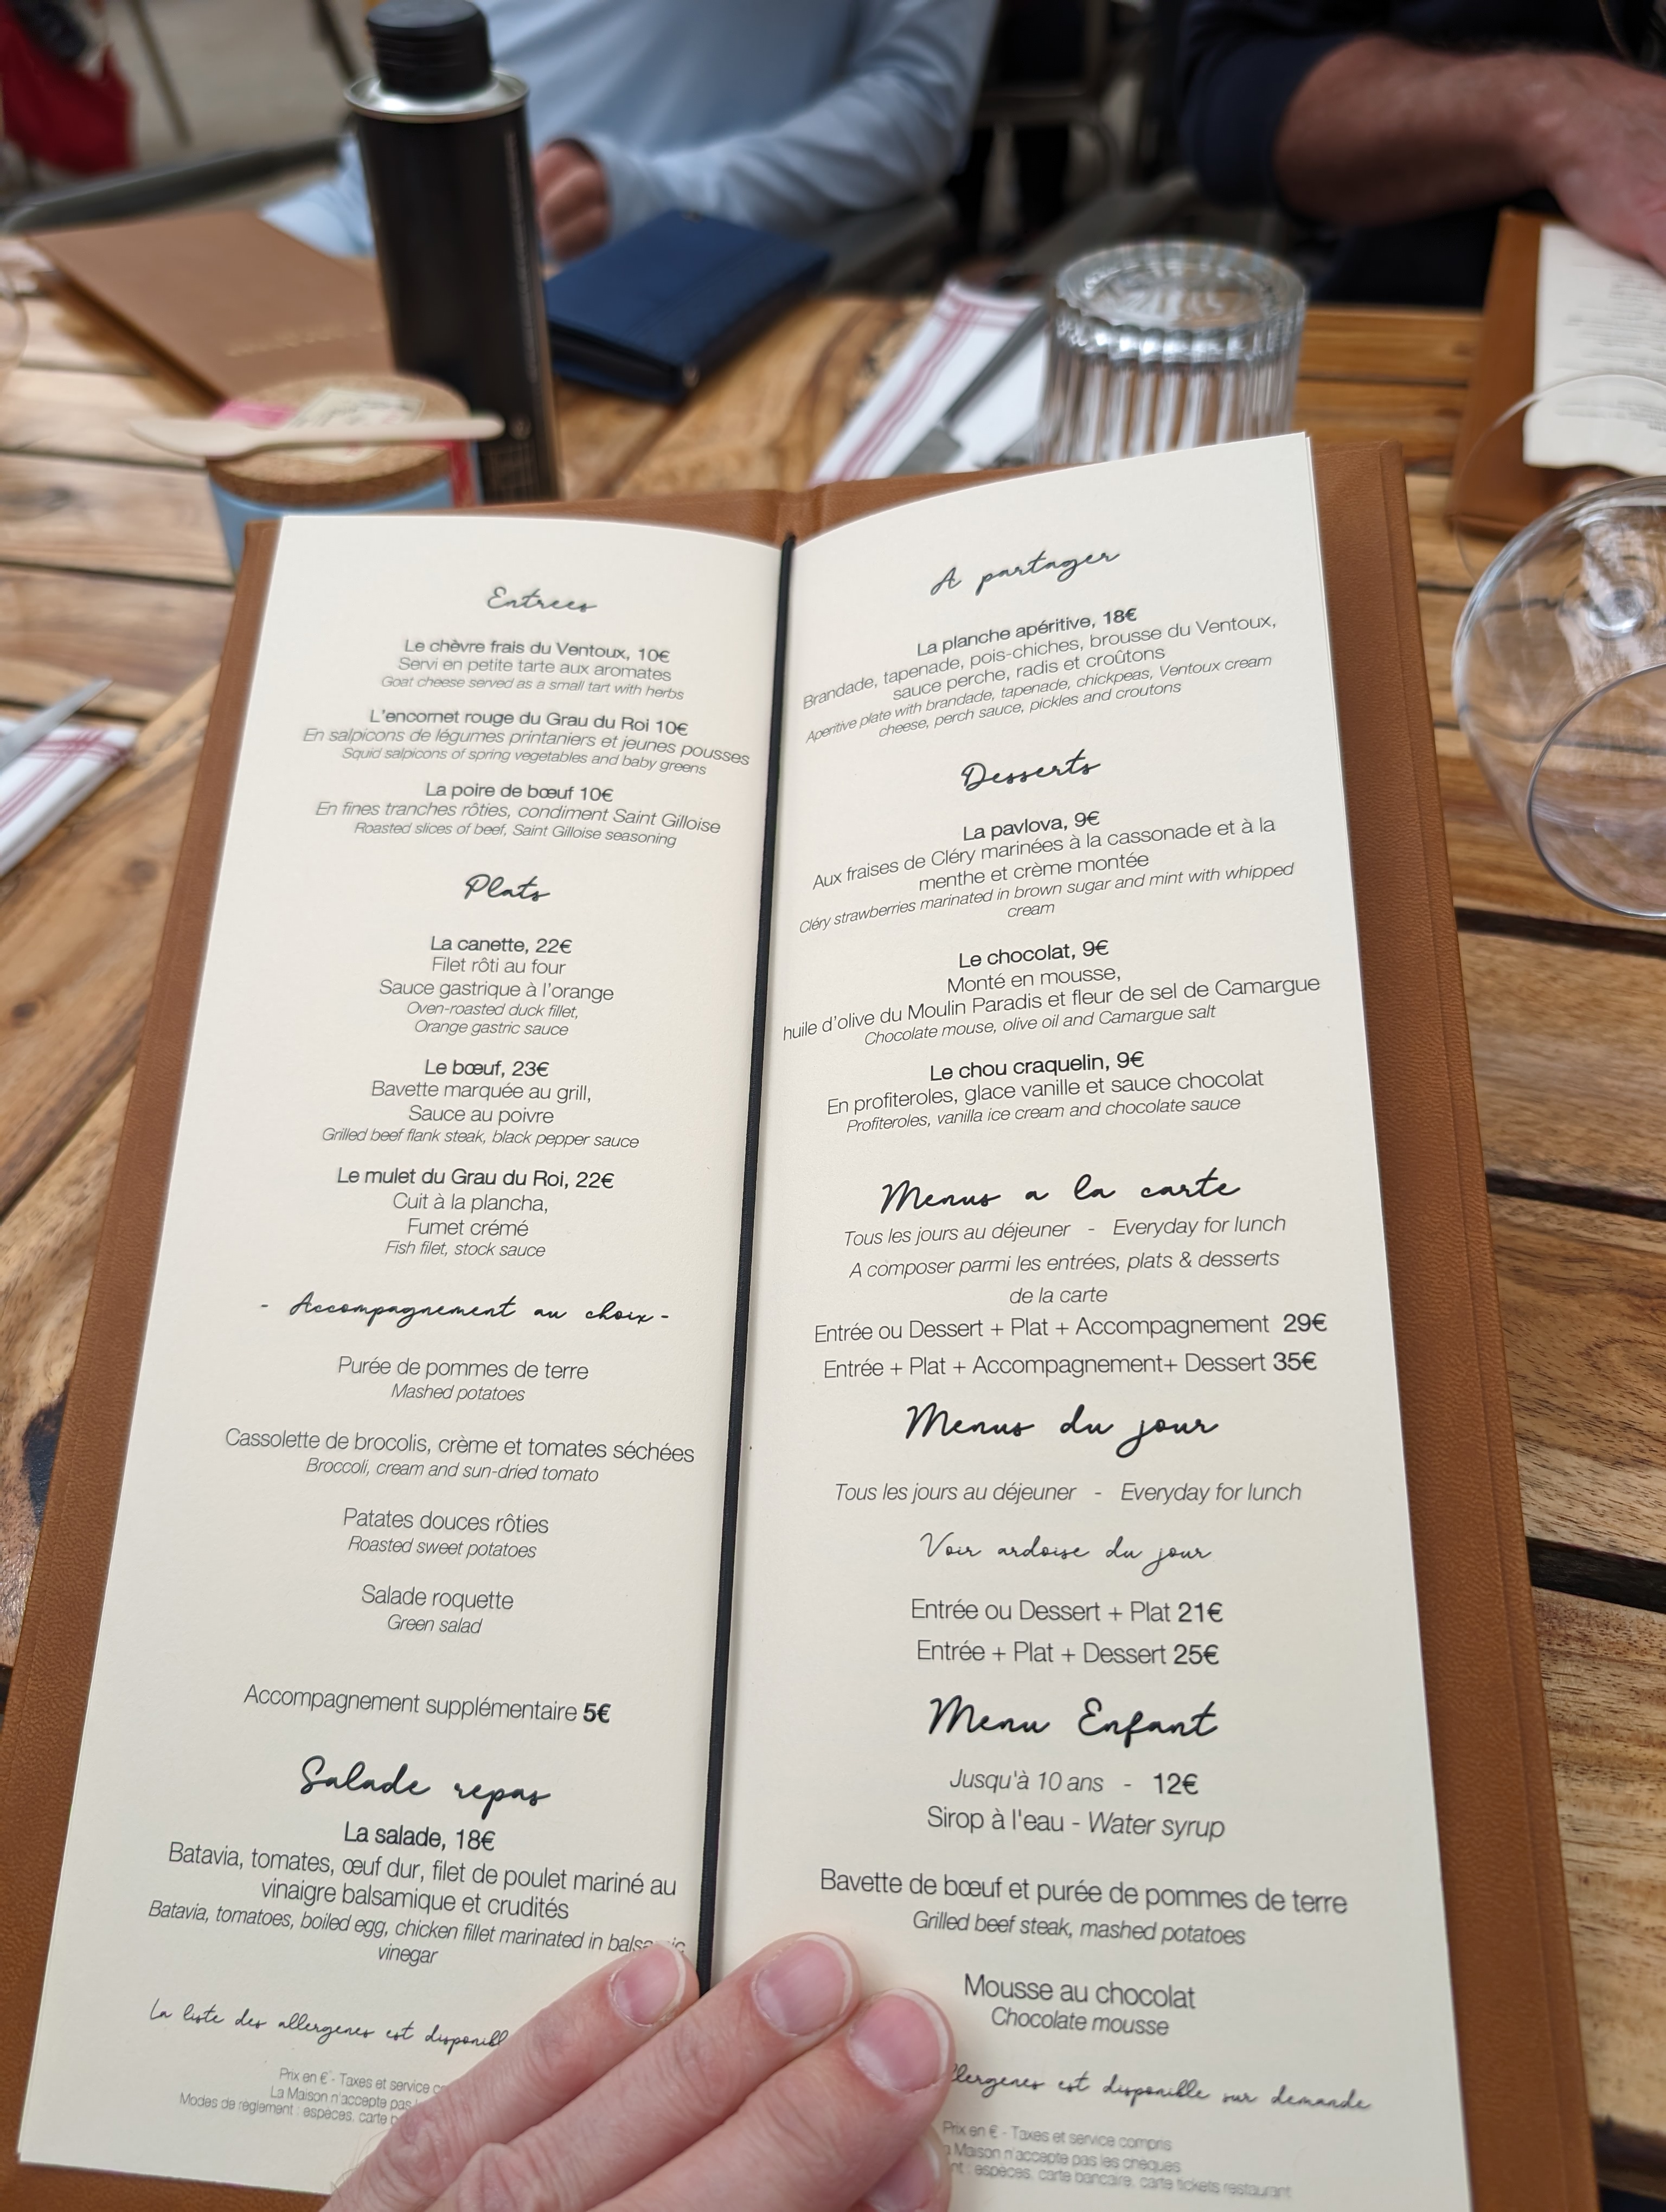 Entrees
Le chèvre frais du Ventoux, 10€
Servi en petite tarte aux aromates
Goat cheese served as a small tart with herbs
L'encornet rouge du Grau du Roi 10€
En salpicons de légumes printaniers et jeunes pousses
Squid salpicons of spring vegetables and baby greens
La poire de bœuf 10€
En fines tranches rôties, condiment Saint Gilloise
Roasted slices of beef, Saint Gilloise seasoning
Plats
La canette, 22€
Filet rôti au four
Sauce gastrique à l'orange
Oven-roasted duck fillet,
Orange gastric sauce
Le bœuf, 23€
Bavette marquée au grill,
Sauce au poivre
Grilled beef flank steak, black pepper sauce
Le mulet du Grau du Roi, 22€
Cuit à la plancha,
Fumet crémé
Fish filet, stock sauce
- Accompagnement au choix -
Purée de pommes de terre
Mashed potatoes
Cassolette de brocolis, crème et tomates séchées
Broccoli, cream and sun-dried tomato
Patates douces rôties
Roasted sweet potatoes
Salade roquette
Green salad
Accompagnement supplémentaire 5€
Salade repas
La salade, 18€
Batavia, tomates, œuf dur, filet de poulet mariné au
vinaigre balsamique et crudités
Batavia, tomatoes, boiled egg, chicken fillet marinated in
vinegar
La liste des allergenes est
Prix en € - Taxes et service
La Maison n'accepte pas
Modes de règlement : espèces, carte
A partager
La planche apéritive, 18€
Brandade, tapenade, pois-chiches, brousse du Ventoux,
sauce perche, radis et croûtons
Aperitive plate with brandade, tapenade, chickpeas, Ventoux cream
cheese, perch sauce, pickles and croutons
Desserts
La pavlova, 9€
Aux fraises de Cléry marinées à la cassonade et à la
menthe et crème montée
Cléry strawberries marinated in brown sugar and mint with whipped
cream
Le chocolat, 9€
Monté en mousse,
huile d'olive du Moulin Paradis et fleur de sel de Camargue
Chocolate mouse, olive oil and Camargue salt
Le chou craquelin, 9€
En profiteroles, glace vanille et sauce chocolat
Profiteroles, vanilla ice cream and chocolate sauce
Menus a la carte
Tous les jours au déjeuner - Everyday for lunch
A composer parmi les entrées, plats & desserts
de la carte
Entrée ou Dessert + Plat + Accompagnement 29€
Entrée + Plat + Accompagnement+ Dessert 35€
Menus du jour
Tous les jours au déjeuner - Everyday for lunch
Voir ardoise du jour
Entrée ou Dessert + Plat 21€
Entrée + Plat + Dessert 25€
Menu Enfant
Jusqu'à 10 ans - 12€
Sirop à l'eau - Water syrup
Bavette de bœuf et purée de pommes de terre
Grilled beef steak, mashed potatoes
Mousse au chocolat
Chocolate mousse
est disponible sur demande
Prix en € - Taxes et service compris
Maison n'accepte pas les cheques
: espèces, carte bancaire, carte tickets restaurant